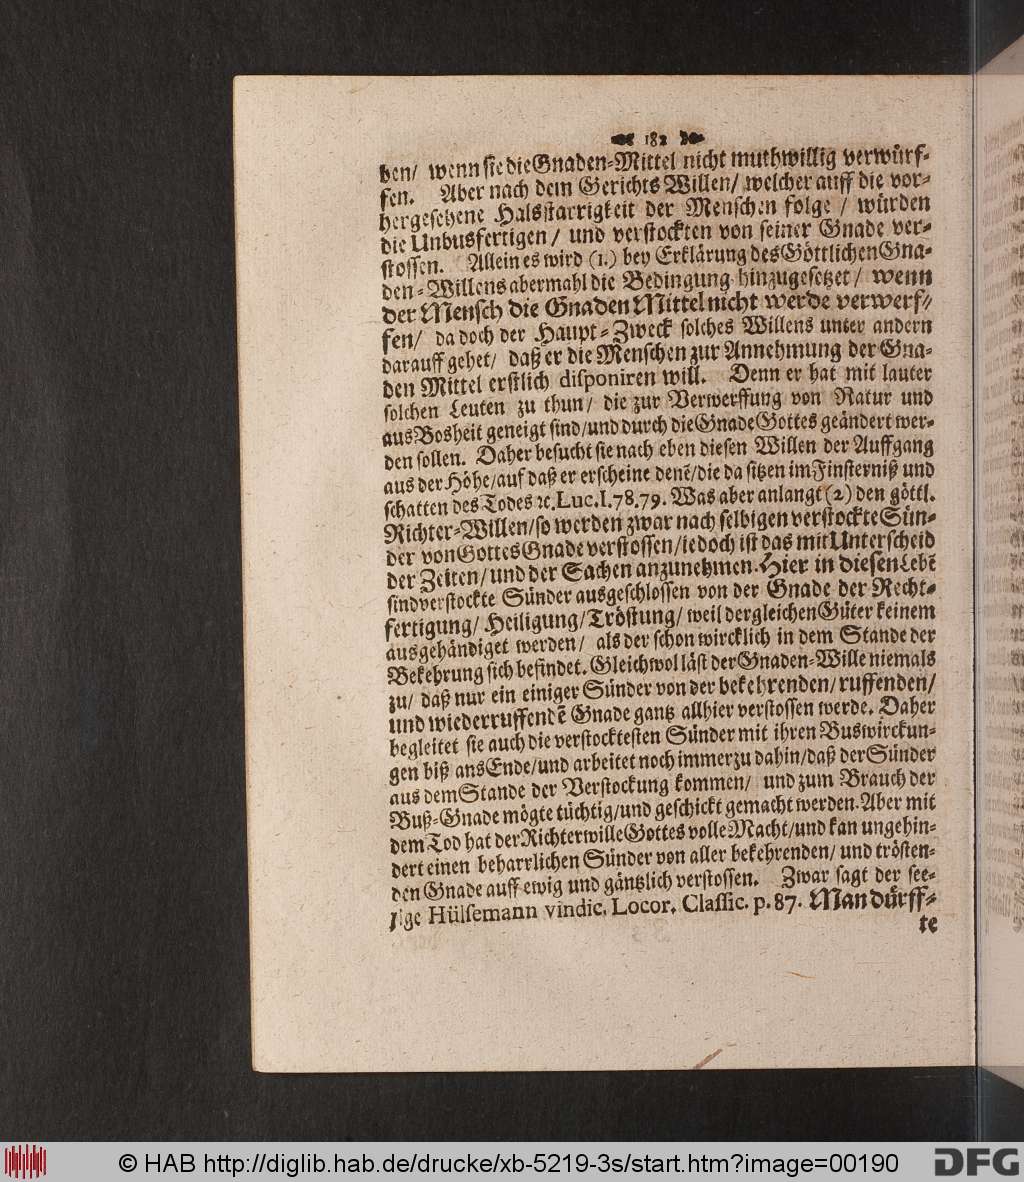 182
ben/ wenn sie die Gnaden-Mittel nicht muthwillig verwürf-
fen. Aber nach dem Gerichts Willen/ welcher auff die vor-
hergesehene Halsstarrigkeit der Menschen folge / würden
die Unbusfertigen/ und verstockten von seiner Gnade ver-
stossen. Allein es wird (1.) bey Erklärung des Göttlichen Gna-
den-Willens abermahl die Bedingung hinzugesetzet/ wenn
der Mensch die Gnaden Mittel nicht werde verwerf-
fen/ da doch der Haupt-Zweck solches Willens unter andern
darauff gehet/ daß er die Menschen zur Annehmung der Gna-
den Mittel erstlich disponiren will. Denn er hat mit lauter
solchen Leuten zu thun/ die zur Verwerffung von Natur und
aus Bosheit geneigt sind/und durch die Gnade Gottes geändert wer-
den sollen. Daher besucht sie nach eben diesen Willen der Auffgang
aus der Höhe/auf daß er erscheine denē/die da sitzen im Finsterniß und
schatten des Todes ꝛc. Luc. I. 78. 79. Was aber anlangt (2) den göttl.
Richter-Willen/so werden zwar nach selbigen verstockte Sün-
der von Gottes Gnade verstossen/iedoch ist das mit Unterscheid
der Zeiten/und der Sachen anzunehmen. Hier in diesen Lebē
sind verstockte Sünder ausgeschlossen von der Gnade der Recht-
fertigung/ Heiligung/Tröstung/ weil dergleichen Güter keinem
ausgehändiget werden/ als der schon wircklich in dem Stande der
Bekehrung sich befindet. Gleichwol läst der Gnaden-Wille niemals
zu/ daß nur ein einiger Sünder von der bekehrenden/ruffenden/
und wiederruffendē Gnade gantz allhier verstossen werde. Daher
begleitet sie auch die verstocktesten Sünder mit ihren Buswirckun-
gen biß ans Ende/und arbeitet noch immerzu dahin/daß der Sünder
aus dem Stande der Verstockung kommen/ und zum Brauch der
Buß-Gnade mögte tüchtig/und geschickt gemacht werden. Aber mit
dem Tod hat der Richterwille Gottes volle Macht/und kan ungehin-
dert einen beharrlichen Sünder von aller bekehrenden/ und trösten-
den Gnade auff ewig und gäntzlich verstossen. Zwar sagt der see-
lige Hülsemann vindic. Locor. Classic. p. 87. Man dürff-
te
© HAB http://diglib.hab.de/drucke/xb-5219-3s/start.htm?image=00190
DFG